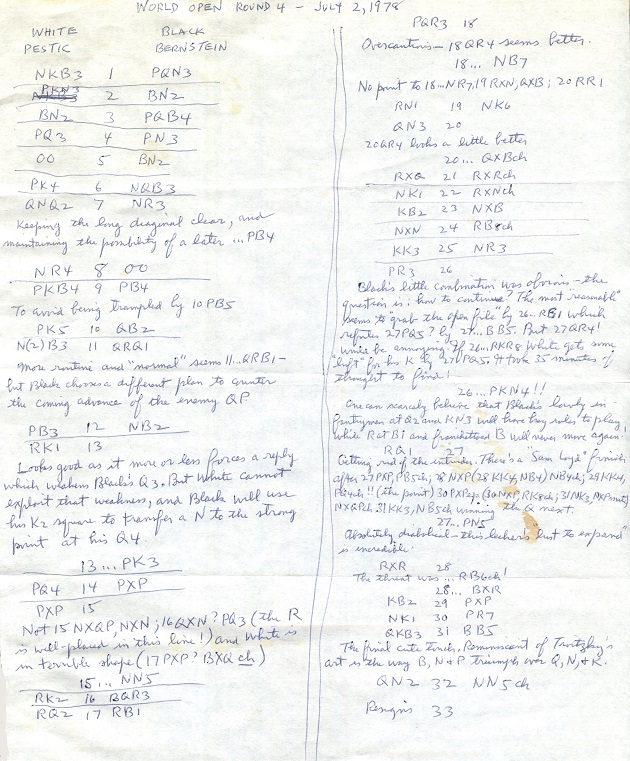 WORLD OPEN ROUND 4 - JULY 2, 1978
WHITE BLACK
PESTIC BERNSTEIN
NKB3 1 PQN3
PKN3 2 BN2
BN2 3 PQB4
PQ3 4 PN3
OO 5 BN2
PK4 6 NQB3
QNQ2 7 NR3
Keeping the long diagonal clear, and
maintaining the possibility of a later ...PB4
NR4 8 OO
PKB4 9 PB4
To avoid being trampled by 10 PB5
PK5 10 QB2
N(2)B3 11 QRQ1
More routine and "normal" seems 11...QRB1 -
but Black chooses a different plan to counter
the coming advance of the enemy QP.
PB3 12 NB2
RK1 13
Looks good as it more or less forces a reply
which weakens Black's Q3. But White cannot
exploit that weakness, and Black will use
his K2 square to transfer a N to the strong
point at his Q4.
13 ... PK3
PQ4 14 PXP
PXP 15
Not 15 NXQP, NXN; 16 QXN? PQ3 (the R
is well-placed in this line!) and White is
in terrible shape (17 PXP? BXQ ch)
15... NN5
RK2 16 BQR3
RQ2 17 RB1
PQR3 18
Overcautious - 18 QR4 seems better.
18... NB7
No point to 18...NR7, 19 RXN, QXB; 20 RR1
RN1 19 NK6
QN3 20
20 QR4 looks a little better
20... QXBch
RXQ 21 RXRch
NK1 22 RXNch
KB2 23 NXB
NXN 24 RB8ch
KK3 25 NR3
PR3 26
Black's little combination was obvious - the
question is: how to continue? The most "reasonable"
seems to "grab the open file" by 26...RB1 which
refutes 27 PQ5? by 27...BB5. But 27 QR4!
would be annoying. If 26...RKR8 White gets some
"luft" for his K by 27 PQ5. It took 35 minutes of
thought to find!
26... PKN4!!
One can scarcely believe that Black's lowly in-
fantrymen at Q2 and KN3 will have key roles to play,
while R at B1 and fianchettoed B will never move again.
RQ1 27
Getting rid of the intruder. There's a "Sam Loyd" finish
after 27 PXP, PB5ch; 28 NXP (28 KK4, NB4) NB4ch; 29 KK4,
PQ4ch!! (the point) 30 PXPep (30 NXP, RK8ch; 31 NK3, NXP mate)
NXQPch, 31 KK3, NB5ch winning the Q next.
27... PN5
Absolutely diabolical - this "lust to expand"
is incredible.
RXR 28
The threat was ... RB6ch!
28... BXR
KB2 29 PXP
NK1 30 PR7
QKB3 31 BB5
The final cute twist. Reminiscent of Troitzky's
art is the way B, N & P triumph over Q, N, & K.
QN2 32 NN5ch
Resigns 33